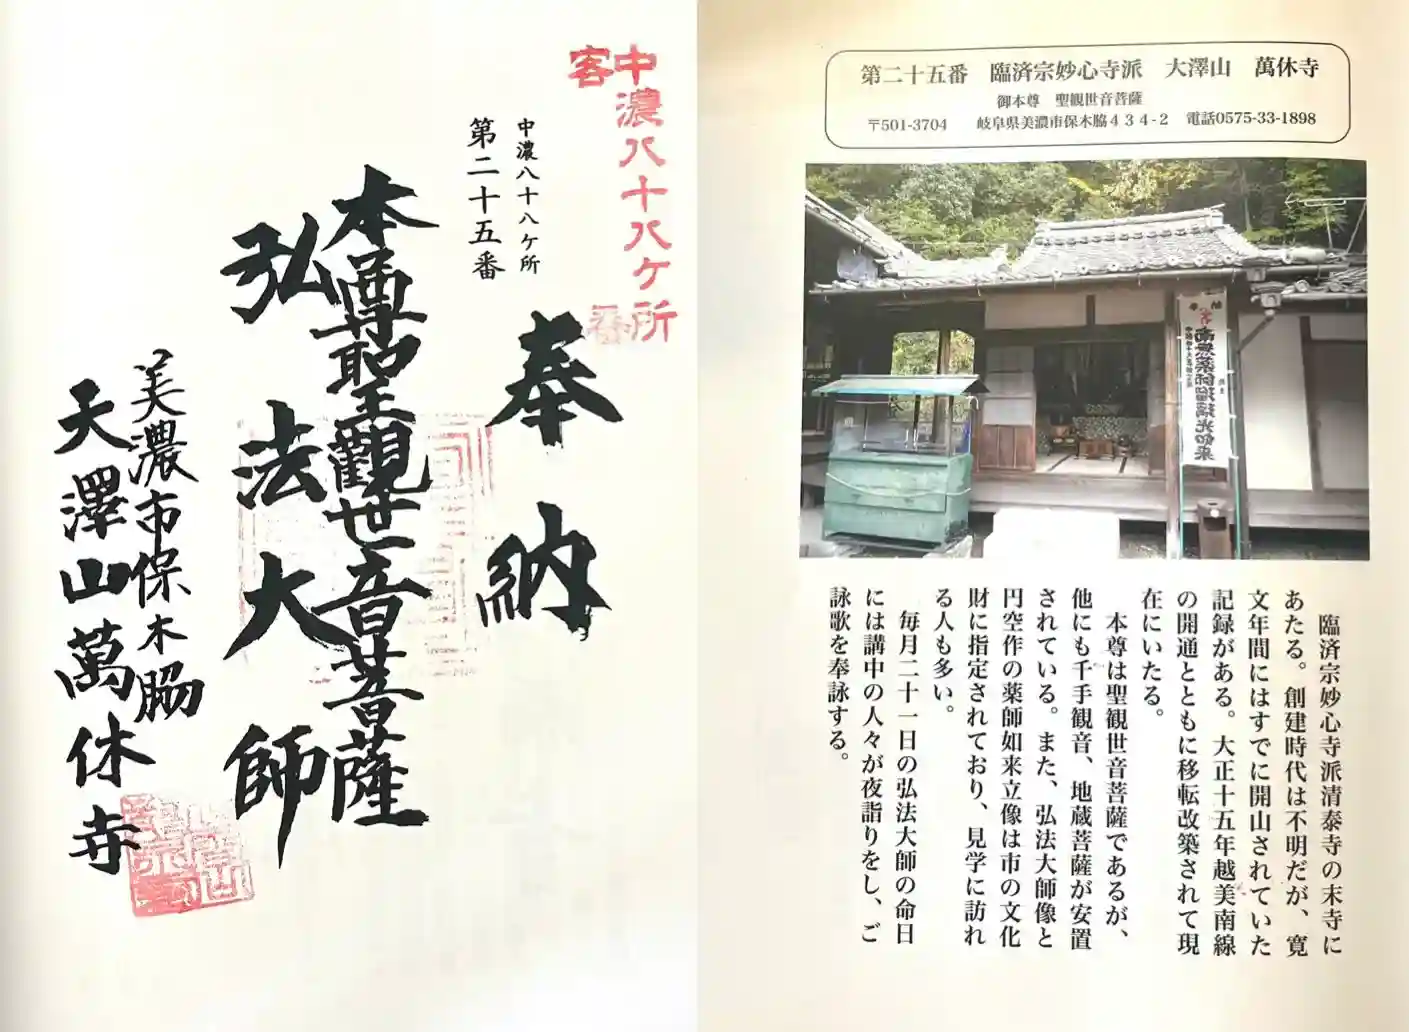 中濃八十八ケ所
客番
奉納
中濃八十八ケ所
第二十五番
本尊聖觀世音菩薩
弘法大師
美濃市保木脇
天澤山萬休寺
第二十五番　臨済宗妙心寺派　大澤山　萬休寺
御本尊　聖観世音菩薩
〒501-3704　岐阜県美濃市保木脇４３４-２　電話0575-33-1898
南無薬師瑠璃光如来
臨済宗妙心寺派清泰寺の末寺に
あたる。創建時代は不明だが、寛
文年間にはすでに開山されていた
記録がある。大正十五年越美南線
の開通とともに移転改築されて現
在にいたる。
本尊は聖観世音菩薩であるが、
他にも千手観音、地蔵菩薩が安置
されている。また、弘法大師像と
円空作の薬師如来立像は市の文化
財に指定されており、見学に訪れ
る人も多い。
毎月二十一日の弘法大師の命日
には講中の人々が夜詣りをし、ご
詠歌を奉詠する。